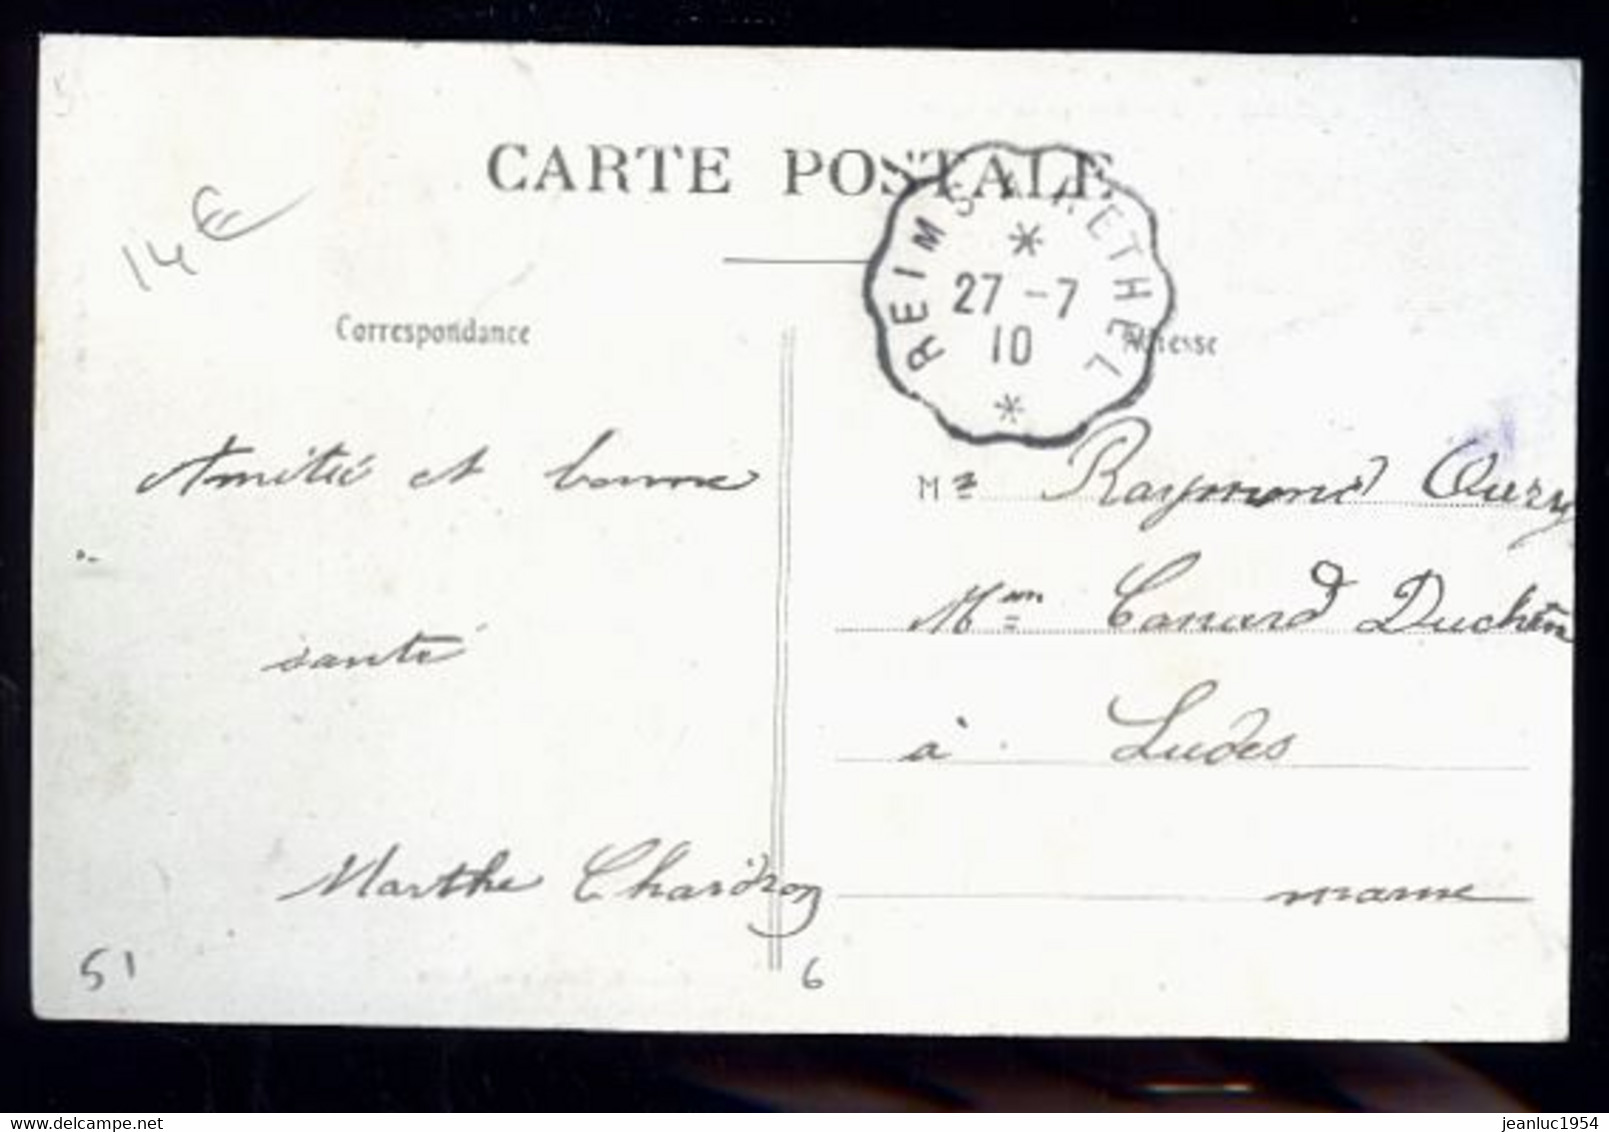 CARTE POSTALE
14€
REIMS A RETHEL
27 - 7
10
Correspondance
Adresse
Amitié et bonne
santé
Marthe Chardron
Mr Raymond Quzy
Mme Canard Duchêne
à Ludes
marne
51
6
jeanluc1954